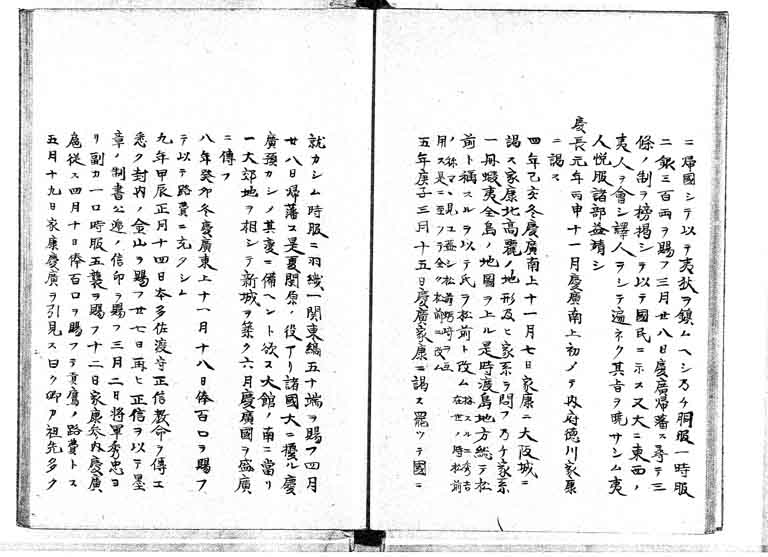 ニ帰國シテ以テ夷狄ヲ鎮ムヘシ乃チ胴服一時服
二銀三百両ヲ賜フ三月廿八日慶廣帰藩ス尋テ三
條ノ制ヲ榜掲シテ以テ國民ニ示ス又大ニ東西ノ
夷人ヲ會シ譯人ヲシテ遍ネク其旨ヲ暁サシム夷
人悦服諸部益靖シ
慶長元年丙申十一月慶廣南上初メテ内府徳川家康
ニ謁ス
四年己亥冬慶廣南上十一月七日家康ニ大阪城ニ
謁ス家康北高麗ノ地形及ヒ家系ヲ問フ乃チ家系
一冊蝦夷全島ノ地圖ヲ上ル是時渡島地方総テ松
前ト稱スルヲ以テ氏ヲ松前ト改ム
用ス是ニ至ツテ全ク松前ニ改ム
五年庚子三月十五日慶廣家康ニ謁ス罷ツテ國ニ
就カシム時服二羽織一関東縞五十端ヲ賜フ四月
廿八日帰藩ス是夏関原ノ役アリ諸國大ニ擾ル慶
廣預カシメ其変ニ備ヘント欲ス大館ノ南ニ當リ
一大郊地ヲ相シテ新城ヲ築ク六月慶廣國ヲ盛廣
ニ傳フ
八年癸卯冬慶廣東上十一月十八日俸百口ヲ賜フ
テ以テ路費ニ充クシム
九年甲辰正月十四日本多佐渡守正信教命ヲ傳エ
悉ク封内ノ金山ヲ賜フ廿七日再ヒ正信ヲ以テ墨
章ノ制書公逓ノ信印ヲ賜フ三月二日将軍秀忠ヨ
リ副力一口時服五襲ヲ賜フ十二日家康参内慶廣
扈従ス四月十日俸百口ヲ賜フテ貢鷹ノ路費トス
五月十九日家康慶廣ヲ引見ス曰ク卿カ祖先多ク